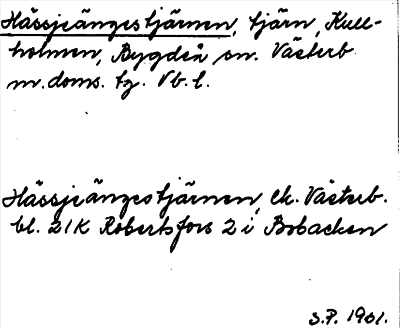 Hässjeängestjärnen, tjärn, Kull-
holmen, Bygdeå sn. Västerb.
m. doms. tg. Vb. l.
Hässjeängestjärnen, Ek. Västerb.
bl. 21K Robertsfors 2 i Bobacken
S.P. 1961.